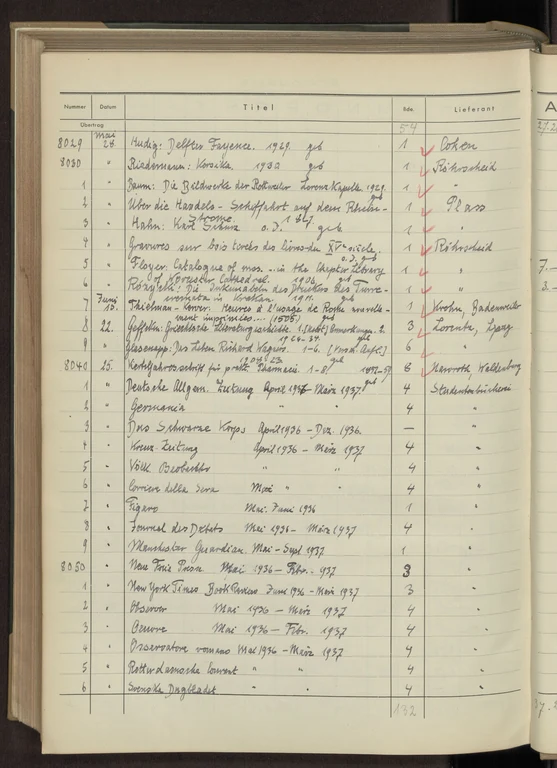 Nummer Datum Titel Bde. Lieferant
Übertrag: 54
8029 Mai 28. Hudig: Delfter Fayence. 1929. geb 1 Cohen
8030 " Riedermann: Korsika. 1930 geb 1 Röhrscheid
1 " Baum: Die Bildwerke der Rottweiler Lorenz Kapelle. 1929. geb 1 "
2 " Über die Handels-Schiffahrt auf dem Rhein-
Strome. 1 Plass
3 " Hahn: Karl Schurz o.J. geb. 1 "
4 " Gravures sur bois tirées des livres du XV e siècle.
o.J. geb 1 Röhrscheid
5 " Floyer: Catalogue of mss. .. in the Chapter Library
of Worcester Cathedral. 1906. geb 1 "
6 " Die Inkunabeln des
in Krakau. 1911. geb 1 "
7 Juni 13. Thielman-Kerver: Heures à l'usage de Rome nouvelle-
ment imprimées... (1505) geb 1 Krohn, Badenweiler
8 22. Geffcken: Griechische Literaturgeschichte. 1. [nebst] Anmerkungen. 2.
1926-34. geb 3 Lorentz, Lpzg
9 " Glasenapp: Das Leben Richard Wagners. 1-6. [Versch. Aufl.] 6 "
8040 25. Vierteljahresschrift für prakt. Pharmacie. 1-8 8 Waldenburg
1 " Deutsche Allgem. Zeitung April 1936 - März 1937. geb 4 Studentenbücherei
2 " Germania " " 4 "
3 " Das Schwarze Korps April 1936 - Dez. 1936. — "
4 " Kreuz-Zeitung April 1936 - März 1937 4 "
5 " Völk Beobachter " " 4 "
6 " Corriere della sera Mai " " 4 "
7 " Figaro Mai. Juni 1936 1 "
8 " Journal des Débats Mai 1936 - März 1937 4 "
9 " Manchester Guardian. Mai - Sept 1937 1 "
8050 " Neue Freie Presse Mai 1936 - Febr. 1937 3 "
1 " New York Times Book Review Juni 1936 - März 1937 3 "
2 " Observer Mai 1936 - März 1937 4 "
3 " Oeuvre Mai 1936 - Febr. 1937 4 "
4 " Osservatore romano Mai 1936 - März 1937 4 "
5 " Rotterdamsche Courant " " 4 "
6 " Svenska Dagbladet " " 4 "
132